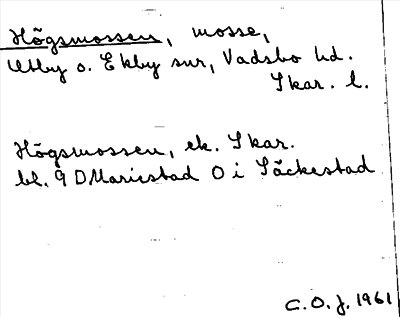 Högsmossen, mosse,
Utby o. Ekby snr, Vadsbo hd.
Skar. l.
Högsmossen, ek. Skar.
bl. 9 D Mariestad O i Säckestad
C.O.J. 1961